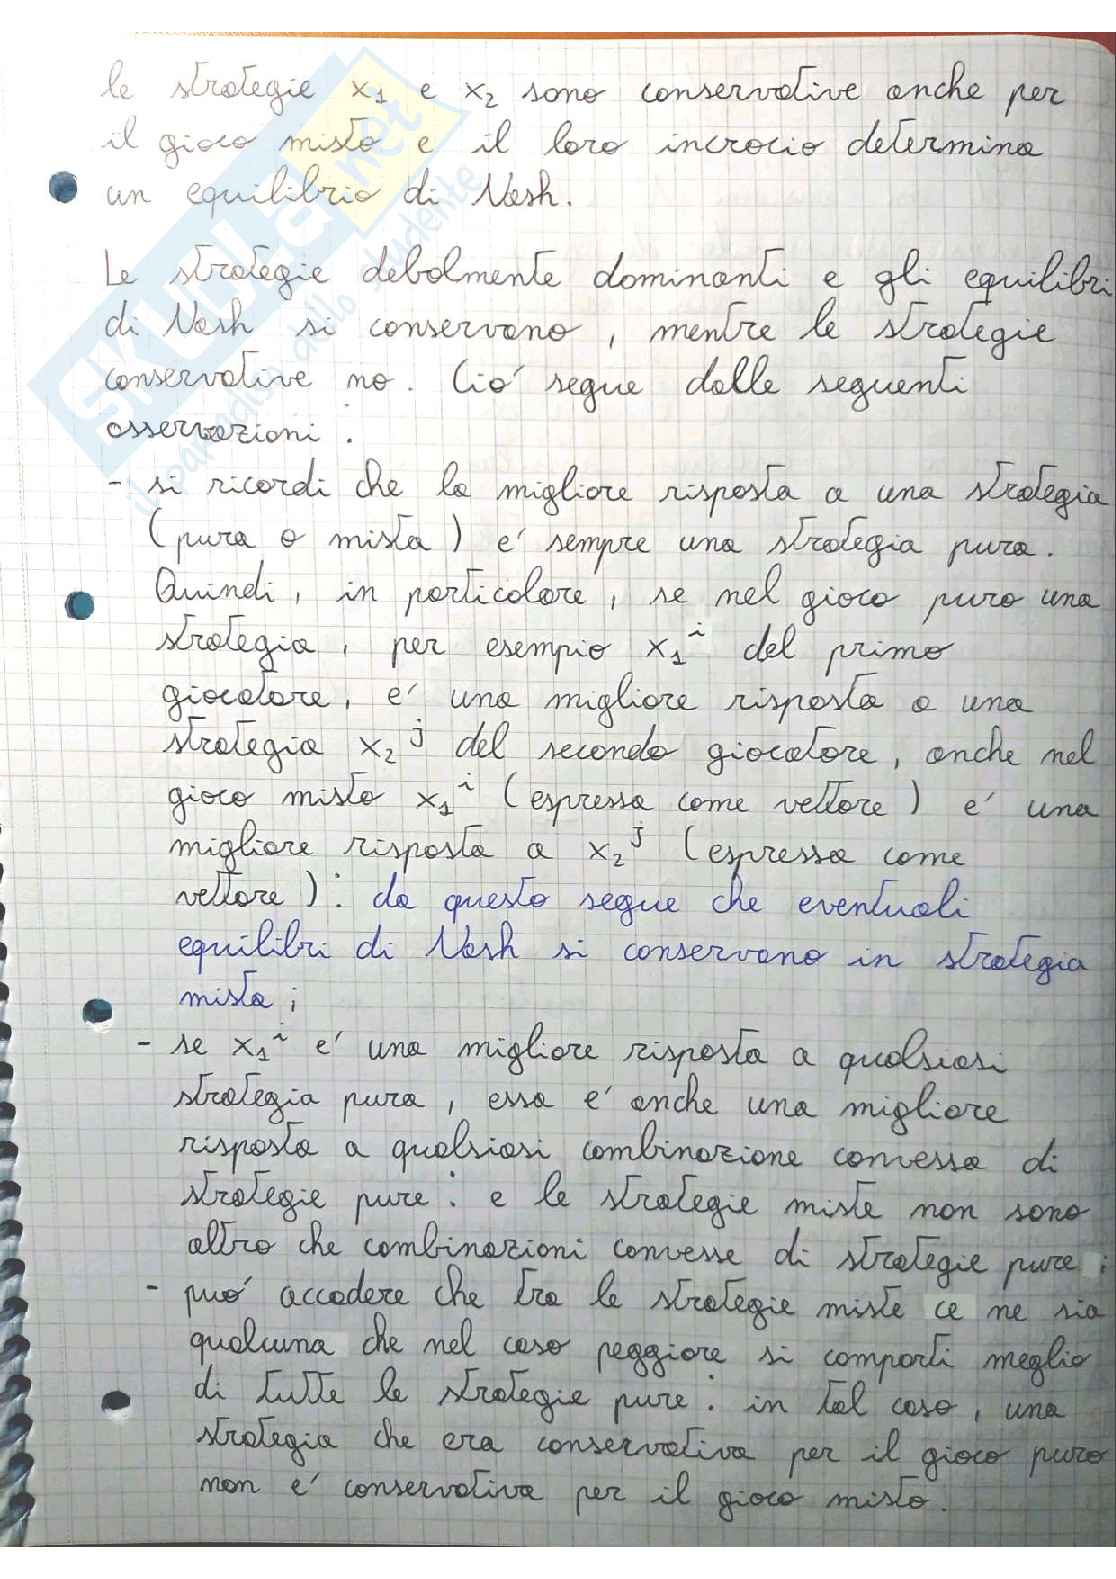 le strategie x₁ e x₂ sono conservative anche per
il gioco misto e il loro incrocio determina
un equilibrio di Nash.
Le strategie debolmente dominanti e gli equilibri
di Nash si conservano, mentre le strategie
conservative no. Ció segue dalle seguenti
osservazioni:
- si ricordi che la migliore risposta a una strategia
(pura o mista) é sempre una strategia pura.
Quindi, in particolare, se nel gioco puro una
strategia, per esempio x₁ⁱ del primo
giocatore, é una migliore risposta a una
strategia x₂ʲ del secondo giocatore, anche nel
gioco misto x₁ⁱ (espressa come vettore) é una
migliore risposta a x₂ʲ (espressa come
vettore): da questo segue che eventuali
equilibri di Nash si conservano in strategia
mista;
- se x₁ⁱ é una migliore risposta a qualsiasi
strategia pura, essa é anche una migliore
risposta a qualsiasi combinazione convessa di
strategie pure: e le strategie miste non sono
altro che combinazioni convesse di strategie pure;
- puó accadere che tra le strategie miste ce ne sia
qualcuna che nel caso peggiore si comporti meglio
di tutte le strategie pure: in tal caso, una
strategia che era conservativa per il gioco puro
non é conservativa per il gioco misto.
SKUOLA.net
il paradiso dello studente